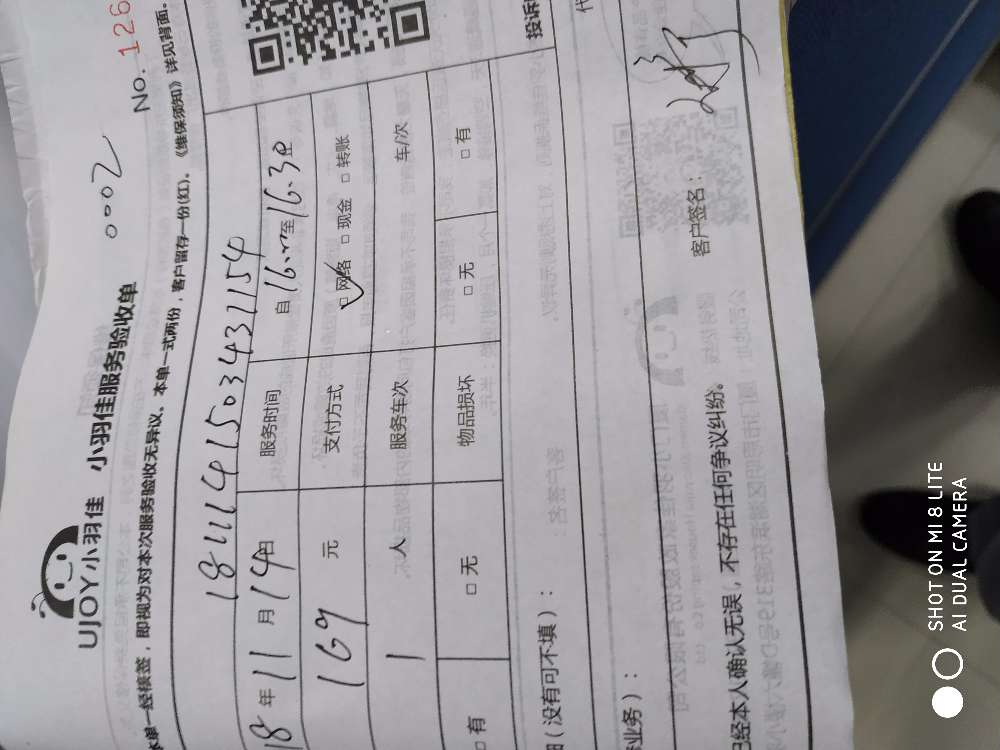 UJOY小羽佳 小羽佳服务验收单
0002
本单一经核签，即视为对本次服务验收无异议。本单一式两份，客户留存一份(红)。《维保须知》详见背面。
No. 126
1811141503431154
18 年 11 月 14 日 服务时间 自 16. 至 16.30
169 元 支付方式 □ 网络 □ 现金 □ 转账
1 人 服务车次 车/次
□ 有 □ 无 物品损坏 □ 无 □ 有
投诉
(没有可不填)：
业务)：
已经本人确认无误，不存在任何争议纠纷。 客户签名：
SHOT ON MI 8 LITE
AI DUAL CAMERA